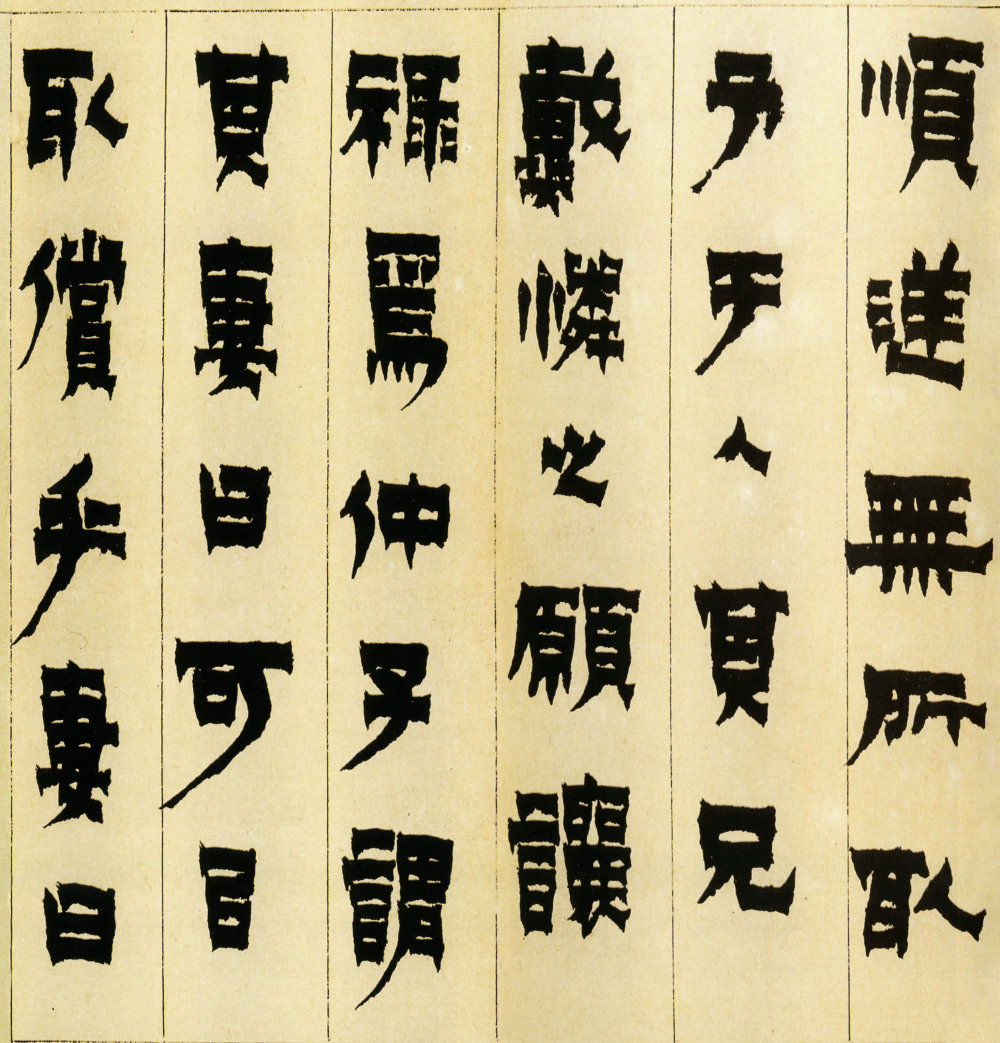 順達無所取
予于人其兄
戴憐之願讓
祿焉仲子謂
其妻曰可㠯
取償乎妻曰